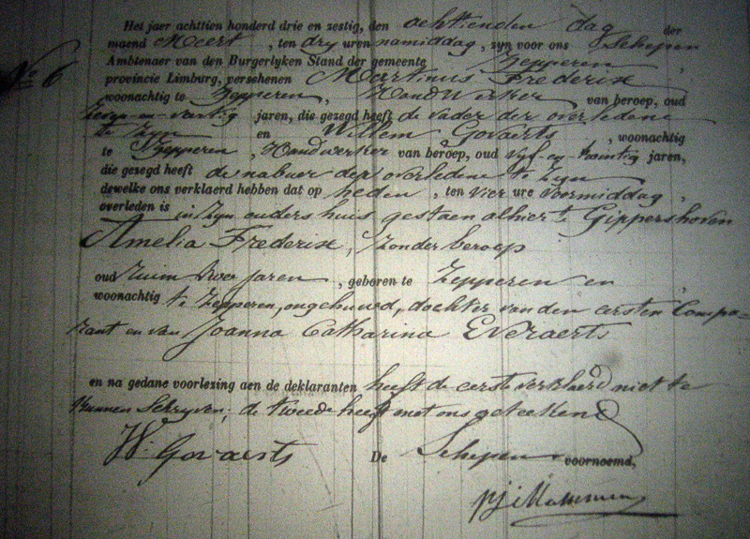 Het jaer achttien honderd drie en zestig, den achttienden dag der
maend Meert, ten dry uren namiddag, zyn voor ons Schepen
Ambtenaer van den Burgerlyken Stand der gemeente Zepperen,
No 6
provincie Limburg, verschenen Martinus Frederix
woonachtig te Zepperen, Handwerker van beroep, oud
en-veertig jaren, die gezegd heeft de vader der overledene
te zyn en Willem Govaerts, woonachtig
te Zepperen, Handwerker van beroep, oud vyf-en-twintig jaren,
die gezegd heeft de nabuer der overledene te zyn
dewelke ons verklaerd hebben dat op heden, ten vier ure voormiddag,
overleden is in zyn ouders huis gestaen alhier te Gippershoven
Amelia Frederix, zonder beroep
oud ruim twee jaren, geboren te Zepperen en
woonachtig te Zepperen, ongehuwd, dochter van den eersten Compa-
rant en van Joanna Catharina Everaerts
en na gedane voorlezing aen de deklaranten heeft de eerste verklaerd niet te
kunnen Schryven; de tweede heeft met ons geteekend
W. Govaerts De Schepen voornoemd,